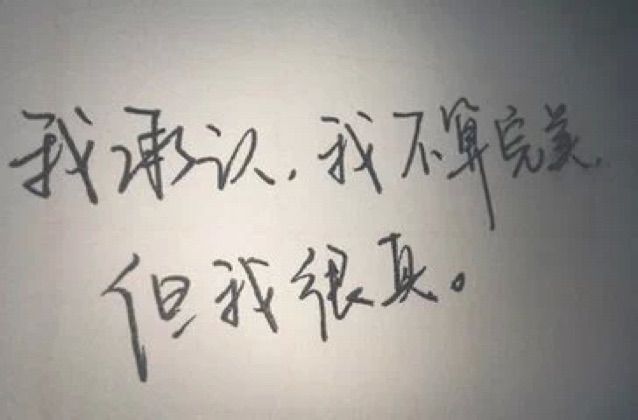 我承认，我不算完美，
但我很真。